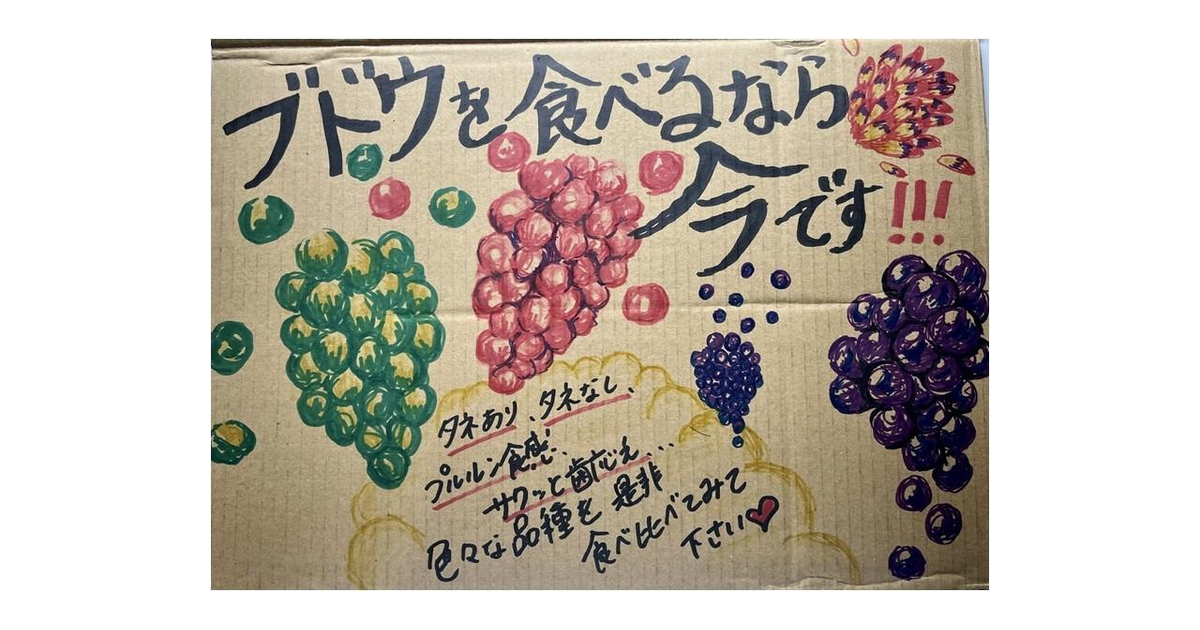 ブドウを食べるなら
今です!!!
タネあり、タネなし、
プルルン食感、
サクッと歯応え...
色々な品種を是非
食べ比べてみて
下さい